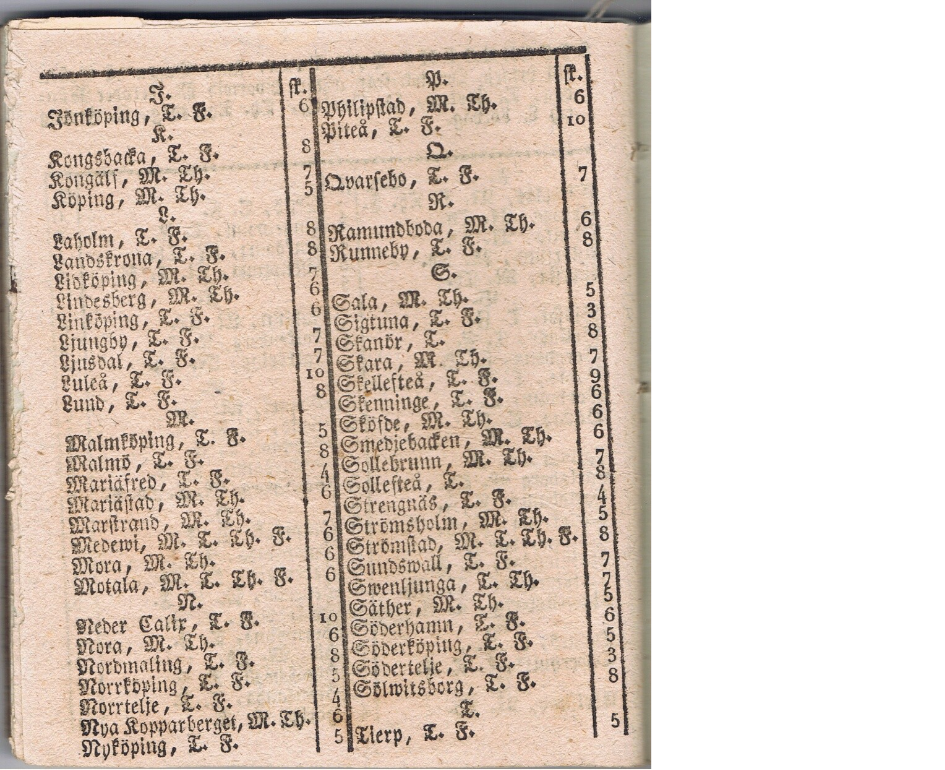 sk.
J.
Jönköping, T. F. 6
K.
Kongsbacka, T. F. 8
Kongälf, M. Th. 7
Köping, M. Th. 5
L.
Laholm, T. F. 8
Landskrona, T. F. 8
Lidköping, M. Th. 7
Lindesberg, M. Th. 6
Linköping, T. F. 6
Ljungby, T. F. 7
Ljusdal, T. F. 7
Luleå, T. F. 10
Lund, T. F. 8
M.
Malmköping, T. F. 5
Malmö, T. F. 8
Mariäfred, T. F. 4
Mariästad, M. Th. 6
Marstrand, M. Th. 7
Medewi, M. T. Th. F. 6
Mora, M. Th. 6
Motala, M. T. Th. F. 6
N.
Neder Calix, T. F. 10
Nora, M. Th. 6
Nordmaling, T. F. 8
Norrköping, T. F. 5
Norrtelje, T. F. 4
Nya Kopparberget, M. Th. 6
Nyköping, T. F. 5
sk.
P.
Philipstad, M. Th. 6
Piteå, T. F. 10
Q.
Qvarsebo, T. F. 7
R.
Ramundboda, M. Th. 6
Runneby, T. F. 8
S.
Sala, M. Th. 5
Sigtuna, T. F. 3
Skanör, T. 8
Skara, M. Th. 7
Skellefteå, T. F. 9
Skenninge, T. F. 6
Sköfde, M. Th. 6
Smedjebacken, M. Th. 6
Sollebrunn, M. Th. 7
Sollefteå, T. 8
Strengnäs, T. F. 4
Strömsholm, M. Th. 5
Strömstad, M. T. Th. F. 8
Sundswall, T. F. 7
Swenljunga, T. Th. 7
Säther, M. Th. 5
Söderhamn, T. F. 6
Söderköping, T. F. 5
Södertelje, T. F. 3
Sölwitsborg, T. F. 8
T.
Tierp, T. F. 5